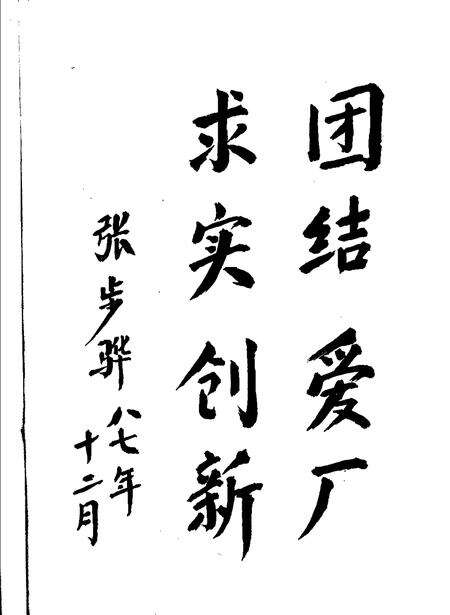 团结爱厂
求实创新
张步骅
八七年
十二月